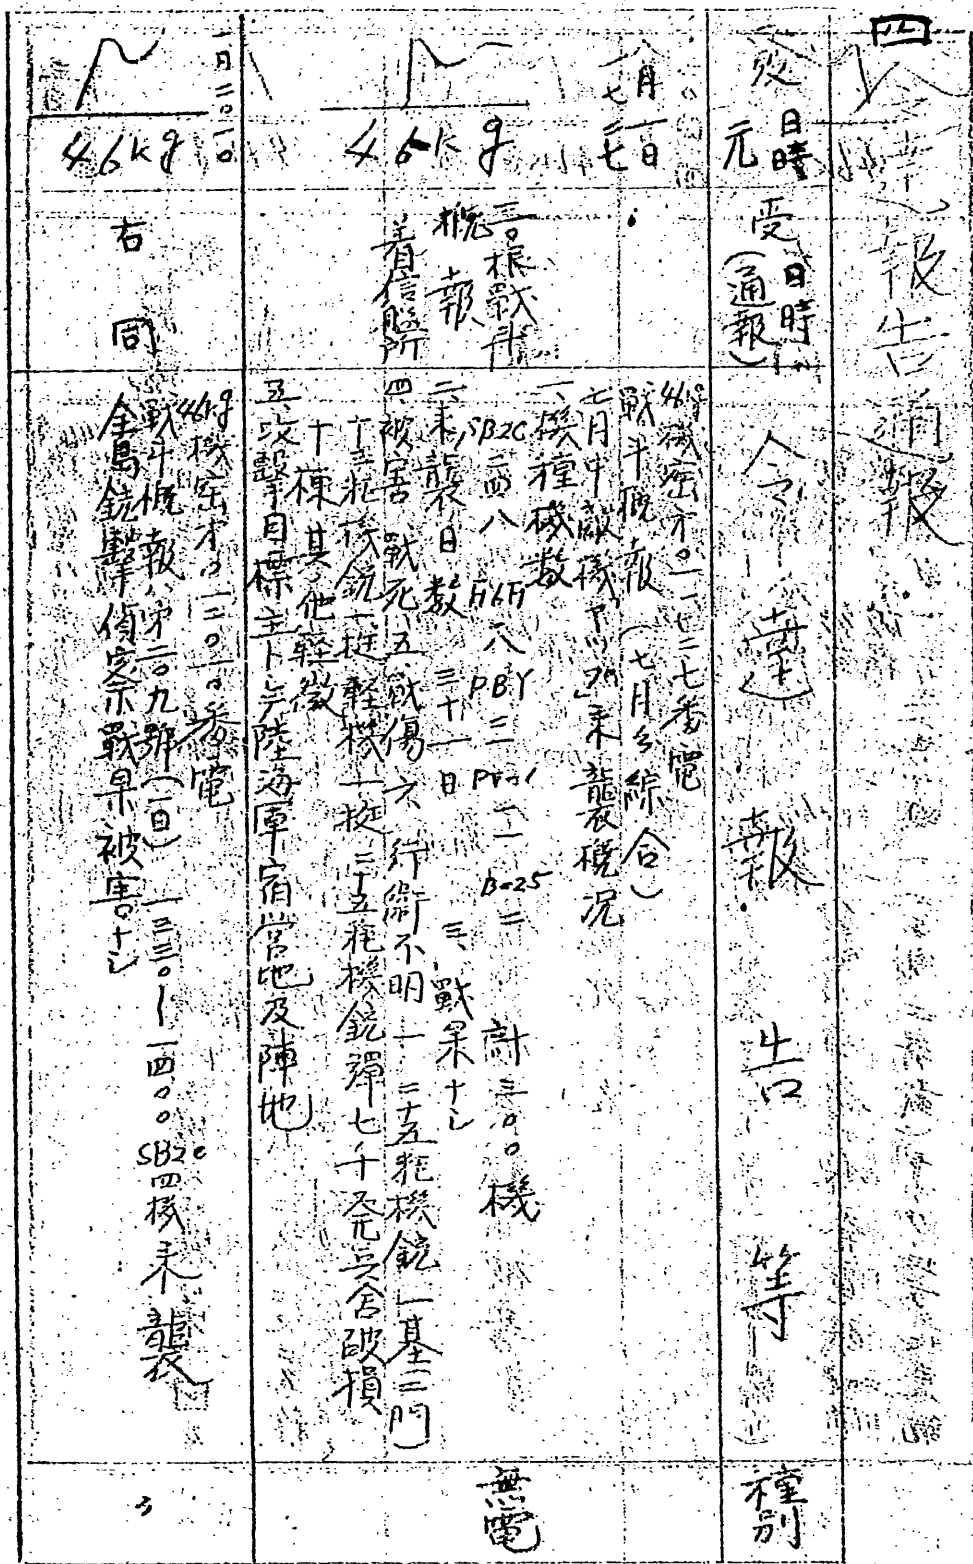 四
令達報告通報
發日時
元
受日時
(通報)
令達報告等
種別
八月一日
一七二七
46kg
三根戰斗
概報
着信艦所
46kg機密才〇一一七二七番電
戰斗概報(七月分綜合)
七月中敵機「ヤップ」来襲概況
一、機種機数
SB2C 二四八 F6F 一八 PBY 三 PV-1 二一 B-25 二 計三〇〇機
二、来襲日数 三十一日 三、戰果ナシ
四、被害 戰死 五 戰傷 六 行衛不明 一 二十五粍機銃一基(二門)
十三粍機銃一挺 軽機一挺 二十五粍機銃彈七千発 兵舍破損
十棟 其ノ他軽微
五、攻擊目標主トシテ陸海軍宿営地及陣地
無電
一日二〇一〇
46kg
右同
46kg機密才〇一二〇一〇番電
戰斗概報、第二〇九號(一日) 一三三〇―一四〇〇 SB2C四機来襲
全島銃擊偵察戰果被害ナシ
〃